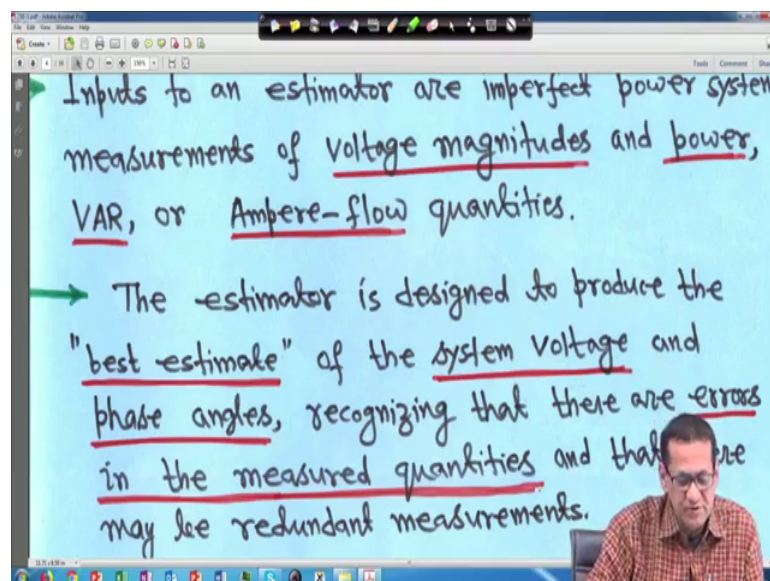 SE-1.pdf - Adobe Acrobat Pro
File Edit View Window Help
Create
4 / 14
198%
Tools Comment
Inputs to an estimator are imperfect power system
measurements of voltage magnitudes and power,
VAR, or Ampere-flow quantities.
The estimator is designed to produce the
"best estimate" of the system voltage and
phase angles, recognizing that there are errors
in the measured quantities and that
may be redundant measurements.